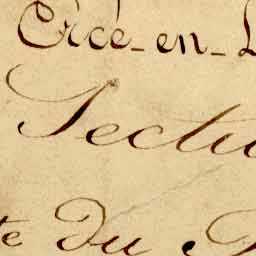 Crcé-en-L
Sectio
te du